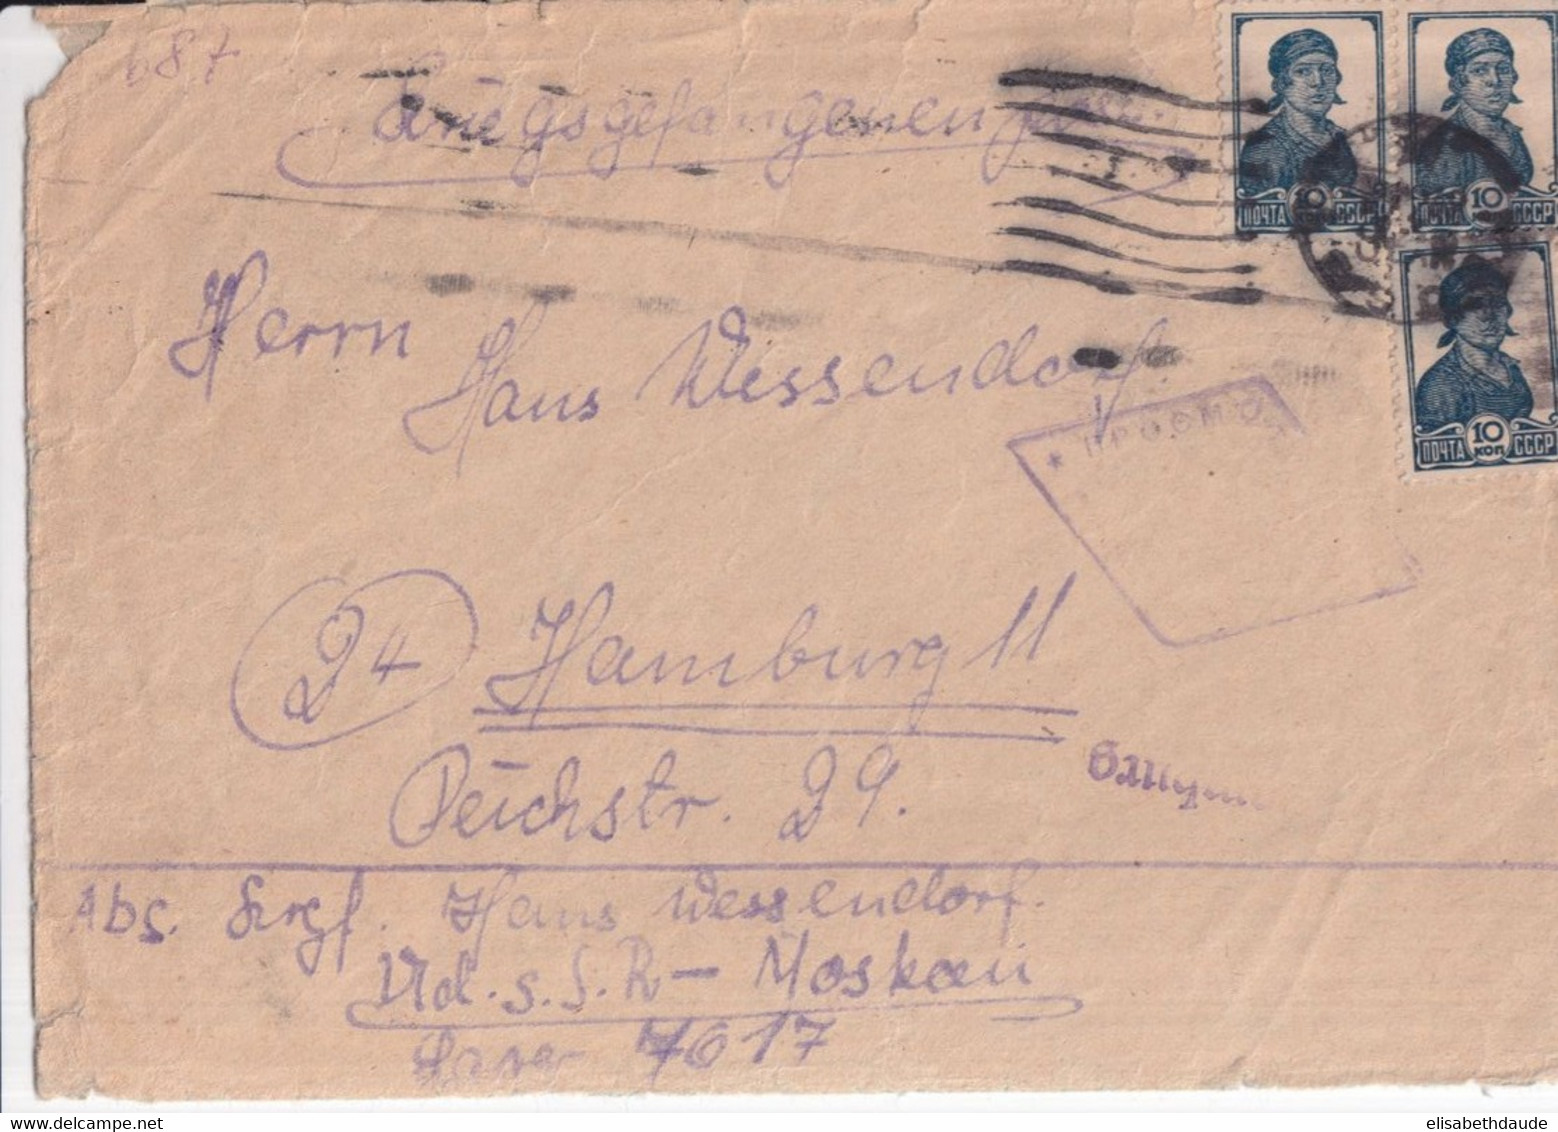 687
Kriegsgefangenenpost.
ПОЧТА 10 КОП СССР
ПОЧТА 10 СССР
ПОЧТА 10 КОП СССР
Herrn
Hans Wessendorf
* ПРОСМО
24 Hamburg 11
Reichstr. 29.
Abs. Krgf. Hans Wessendorf.
Ud.S.S.R – Moskau
Lager 7617
www.delcampe.net
elisabethdaude